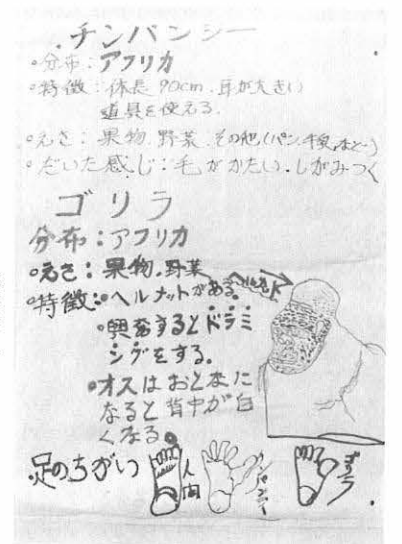 チンパンジー
◦分布:アフリカ
◦特徴:体長90cm.耳が大きい
道具を使える.
◦えさ:果物.野菜.その他(パン.など)
◦だいた感じ:毛がかたい.しがみつく
ゴリラ
分布:アフリカ
◦えさ:果物.野菜
◦特徴:◦ヘルメットがある。
ヘルメット
◦興奮するとドラミ
ングをする。
◦オスはおとなに
なると背中が白
くなる。
足のちがい
人間
チンパンジー
ゴリラ